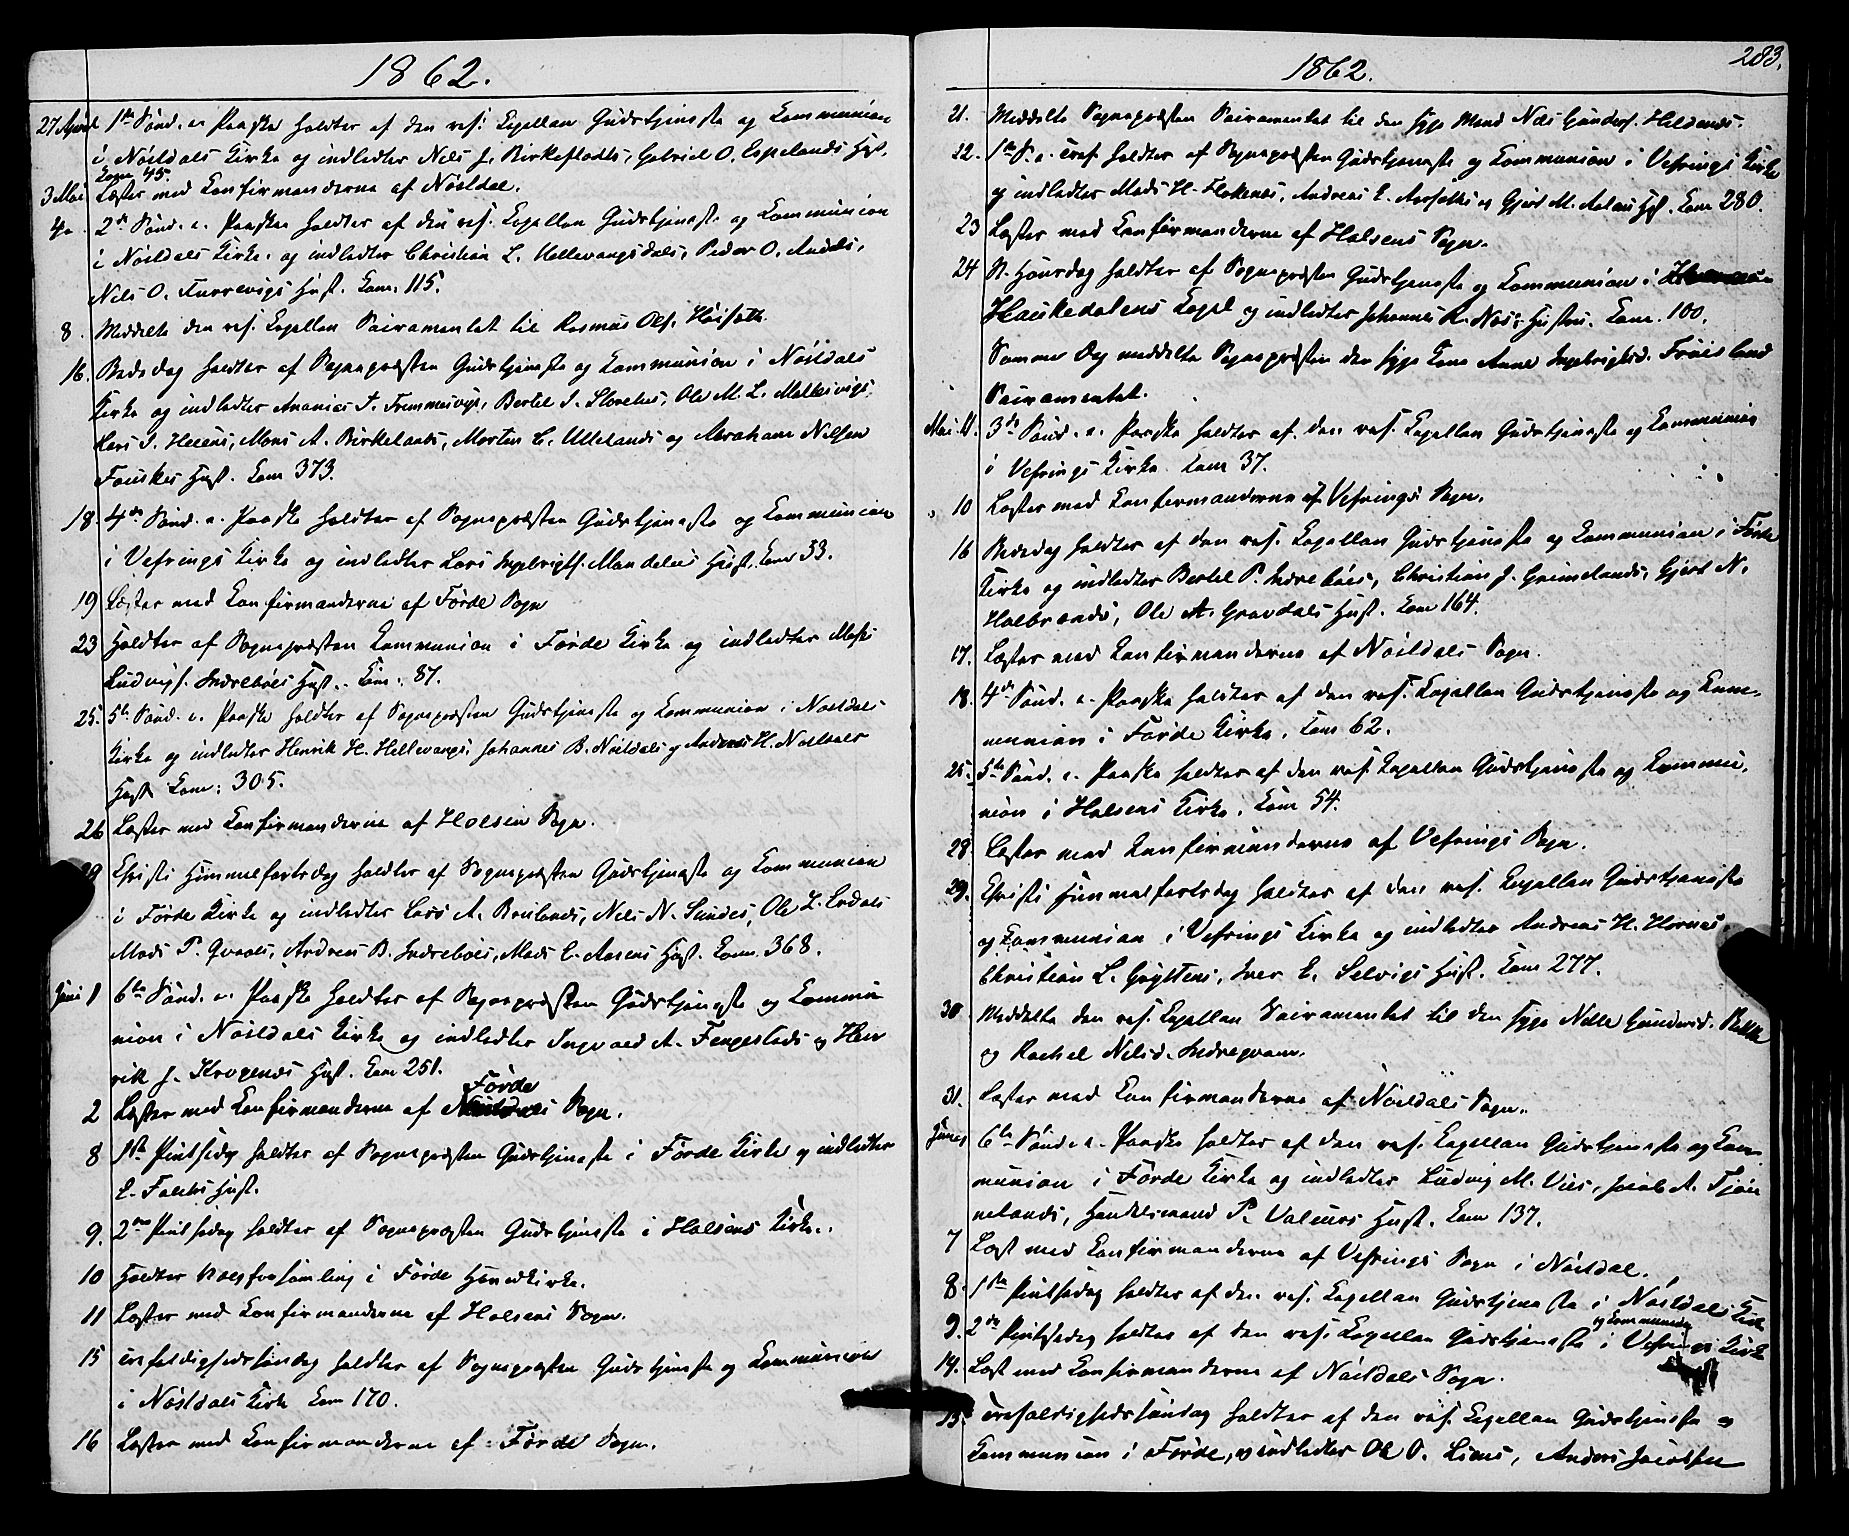 1862.
27 April 1ste Sønd. e. Paaske holdtes af den res. Capellan Gudstjeneste og Communion
i Nøstdals Kirke og indledtes Niels J. Birkestedts, Gabriel O. Espelands Hust.
Com 45.
3 Mai Læstes med Confirmanderne af Nøstdal.
4de 2de Sønd. e. Paaske holdtes af den res. Capellan Gudstjeneste og Communion
i Nøstdals Kirke, og indledtes Christian L. Hellevangsdals, Peder O.
Nils O. Furrevigs Hust. Com: 115.
8. Meddelte den res. Capellan Sacramentet til Rasmus Ols. Høiseth
16. Bededag holdtes af Sognepræsten Gudstjeneste og Communion i Nøstdals
Kirke og indledtes Ananias S. Fremmesvigs, Bertel I. Ole M. L.
Lars I. Helens, Mons A. Birkelands, Morten C. Ullelands og Abraham Nilsen
Fauskes Hust. Com 373.
18. 4de Sønd. e. Paaske holdtes af Sognepræsten Gudstjeneste og Communion
i Vefrings Kirke og indledtes Lars Ingebrigts. Mandelus Hust. Com 33.
19 Læstes med Confirmanderne af Førde Sogn
23 Holdtes af Sognepræsten Communion i Førde Kirke og indledtes
Ludvigs. Indrebøes Hust. Com: 87.
25. 5te Sønd. e. Paaske holdtes af Sognepræsten Gudstjeneste og Communion i Nøstdals
Kirke og indledtes Henrik H. Hellevangs, Johannes B. Nøstdals og Anders H. Nøstdals
Hust. Com: 305.
26 Læstes med Confirmanderne af Holsen Sogn.
29 Christi Himmelfartsdag holdtes af Sognepræsten Gudstjeneste og Communion
i Førde Kirke og indledtes Lars A. Brulands, Nils N. Sundes, Ole L. Erdals
Mads P. Qvaals, Andreas B. Indrebøes, Mads E. Aasens Hust. Com. 368.
Juni 1 6te Sønd. e. Paaske holdtes af Sognepræsten Gudstjeneste og Commu
nion i Nøstdals Kirke og indledtes Ingvald A. Fengestads og Hen
rik J. Krogenæs Hust. Com 251.
Førde
2 Læstes med Confirmanderne af Sogn.
8 1ste Pintsedag holdtes af Sognepræsten Gudstjeneste i Førde Kirke og indledtes
E. Falchs Hust.
9. 2den Pintsedag holdtes af Sognepræsten Gudstjeneste i Holsens Kirke.
10 Holdtes Valgforsamling i Førde Hovedkirke.
11 Læstes med Confirmanderne af Holsens Sogn.
15 Trefoldighedssøndag holdtes af Sognepræsten Gudstjeneste og Communion
i Nøstdals Kirke Com 170.
16 Læstes med Confirmanderne af Førde Sogn.
1862.
283.
21. Meddelte Sognepræsten Sacramentet til den syge Mand Nils Gunders. Heldenes.
22. 1ste S. e. Tref. holdtes af Sognepræsten Gudstjeneste og Communion i Vefrings Kirke
og indledtes Mads H. Flokenes, Andreas E. og Gjert M. Hust. Com 280.
23 Læstes med Confirmanderne af Holsens Sogn.
24 St. Hansdag holdtes af Sognepræsten Gudstjeneste og Communion i
Haukedalens Capel og indledtes Johannes R. Næs's Hustru. Com. 100.
Samme Dag meddelte Sognepræsten den syge Kone Anne Ingebrigtsd. Frøisland
Sacramentet.
Mai 11. 3de Sønd. e. Paaske holdtes af den res. Capellan Gudstjeneste og Communion
i Vefrings Kirke. Com 37.
10 Læstes med Confirmanderne af Vefrings Sogn.
16 Bededag holdtes af den res. Capellan Gudstjeneste og Communion i Førde
Kirke og indledtes Bertel P. Indrebøes, Christian J. Grimelands, Gjert N.
Halbrends, Ole A. Gravdals Hust. Com 164.
17. Læstes med Confirmanderne af Nøstdals Sogn.
18. 4de Sønd. e. Paaske holdtes af den res. Capellan Gudstjeneste og Com-
munion i Førde Kirke. Com 62.
25. 5te Sønd. e. Paaske holdtes af den res. Capellan Gudstjeneste og Commu-
nion i Holsens Kirke. Com 54.
28 Læstes med Confirmanderne af Vefrings Sogn.
29. Christi Himmelfartsdag holdtes af den res. Capellan Gudstjeneste
og Communion i Vefrings Kirke og indledtes Andreas H. Hornes,
Christian L. Iver E. Selvigs Hust. Com 277.
30 Meddelte den res. Capellan Sacramentet til den syge Nille Gundersd.
og Rachel Nilsd. Indregvam.
31. Læstes med Confirmanderne af Nøstdals Sogn.
Juni 1 6te Sønd. e. Paaske holdtes af den res. Capellan Gudstjeneste og Com-
munion i Førde Kirke og indledtes Ludvig M. Vies, Jacob A. Tjøn
nelands, Handelsmand P. Valeurs Hust. Com 137.
7 Læst med Confirmanderne af Vefrings Sogn i Nøstdal.
8. 1ste Pintsedag holdtes af den res. Capellan Gudstjeneste i Nøstdals Kirke
og Communion
9. 2den Pintsedag holdtes af den res. Capellan Gudstjeneste i Vefrings Kirke
14. Læst med Confirmanderne af Nøstdals Sogn.
15. Trefoldighedssøndag holdtes af den res. Capellan Gudstjeneste og
Communion i Førde, og indledtes Ole O. Liens, Anders Jacobsen